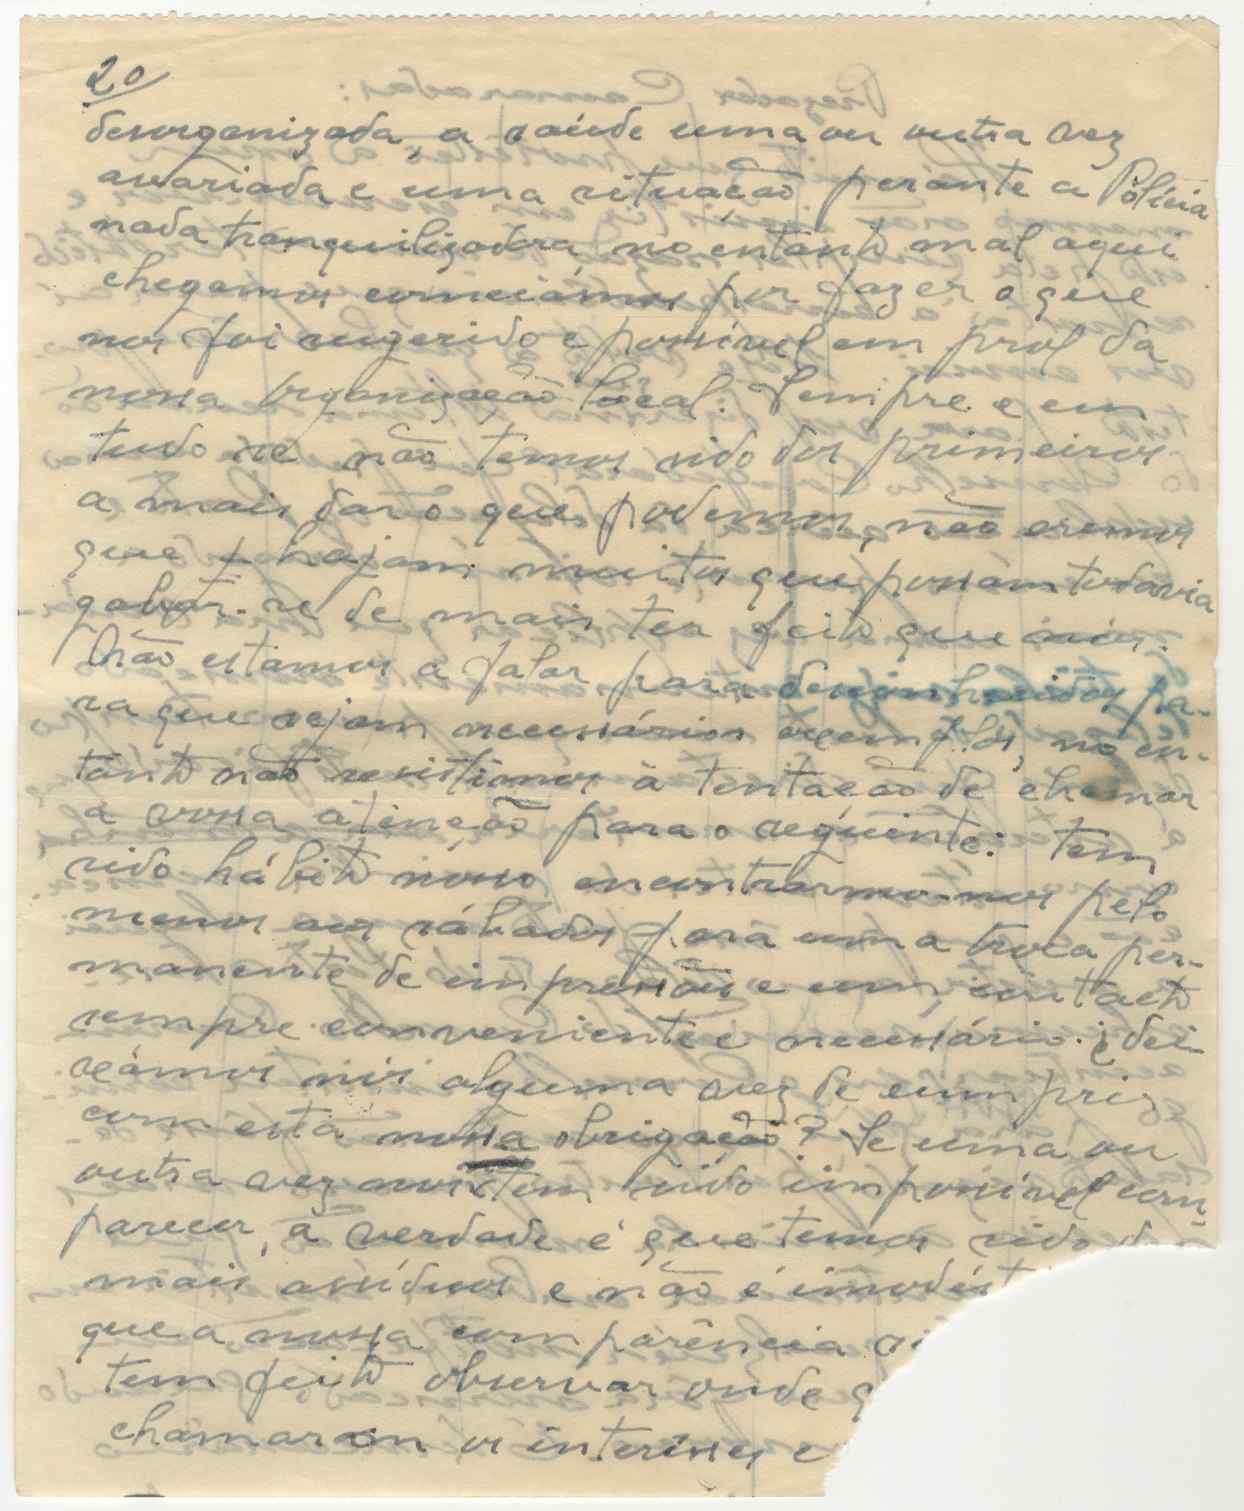 20
desorganizada, a saúde uma ou outra vez
avariada e uma situação perante a Polícia
nada tranquilizadora, no entanto mal aqui
chegamos começámos por fazer o que
nos foi sugerido e possível em prol da
nossa Organização local. Sempre e em
tudo se não temos sido dos primeiros
a mais dar o que podemos, não cremos
que hajam muitos que possam todavia
gabar-se de mais ter feito que nós.
Não estamos a falar para desconhecidos pa-
ra que sejam necessários exemplos, no en-
tanto não resistimos à tentação de chamar
a vossa atenção para o seguinte: tem
sido hábito nosso encontrarmo-nos pelo
menos aos sábados para uma troca per-
manente de impressões e um contacto
sempre conveniente e necessário. ¿ dei-
xámos nós alguma vez de cumprir
com esta nossa obrigação? Se uma ou
outra vez nos tem sido impossível com-
parecer, a verdade é que temos sido d
mais assíduos e não é imodést
que a nossa comparência s
tem feito observar onde q
chamaram os interesses e